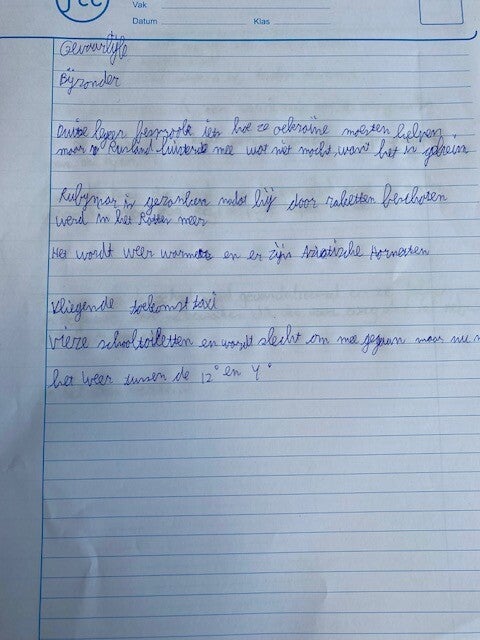 Vak
Datum Klas
Gevaarlijke
Bijzonder
Duitse leger besprook iets hoe ze oekraïne moesten helpen
maar Rusland luisterde mee wat niet mocht want het is geheim
Rubymar is gezonken nadat hij door raketten beschoten
werd in het Rotten meer
Het wordt weer warmer en er zijn Aziatische Hornesten
Vliegende toekomst taxi
vieze schooltoiletten en wordt slecht om mee gegaan maar nu
het weer tussen de 12° en 4°